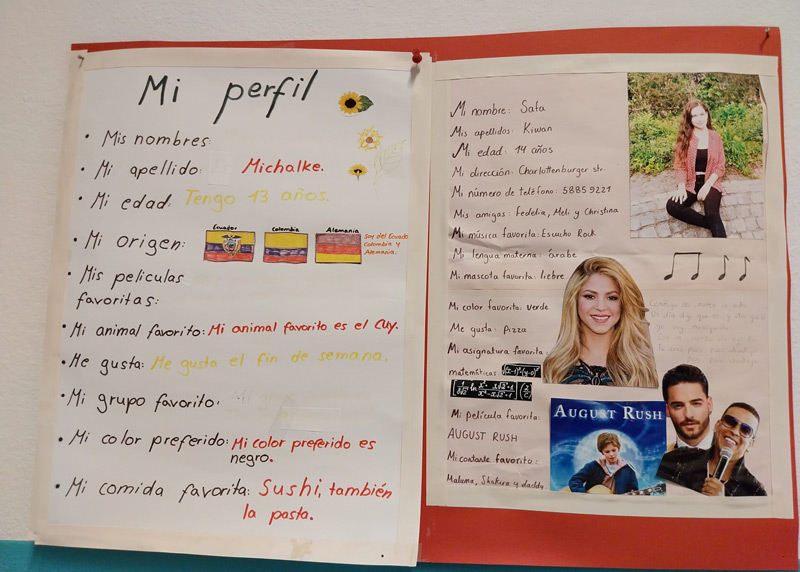 Mi perfil
• Mis nombres:
• Mi apellido: Michalke.
• Mi edad: Tengo 13 años.
• Mi origen:
Ecuador Colombia Alemania
Soy del Ecuado
Colombia y
Alemania.
• Mis peliculas
favoritas:
• Mi animal favorito: Mi animal favorito es el Cuy.
• Me gusta: Me gusta el fin de semana.
• Mi grupo favorito:
• Mi color preferido: Mi color preferido es
negro.
• Mi comida favorita: Sushi, también
la pasta.
Mi nombre: Safa
Mis apellidos: Kiwan
Mi edad: 14 años
Mi dirección: Charlottenburger str.
Mi número de teléfono: 5885 9221
Mis amigas: Fedelia, Meli y Christina
Mi música favorita: Escucho Rock
Mi lengua materna: árabe
Mi mascota favorita: liebre
Mi color favorito: verde
Me gusta: pizza
Mi asignatura favorita
matemáticas
Mi película favorita:
AUGUST RUSH
Mi cantante favorito:
Maluma, Shakira y daddy
AUGUST RUSH